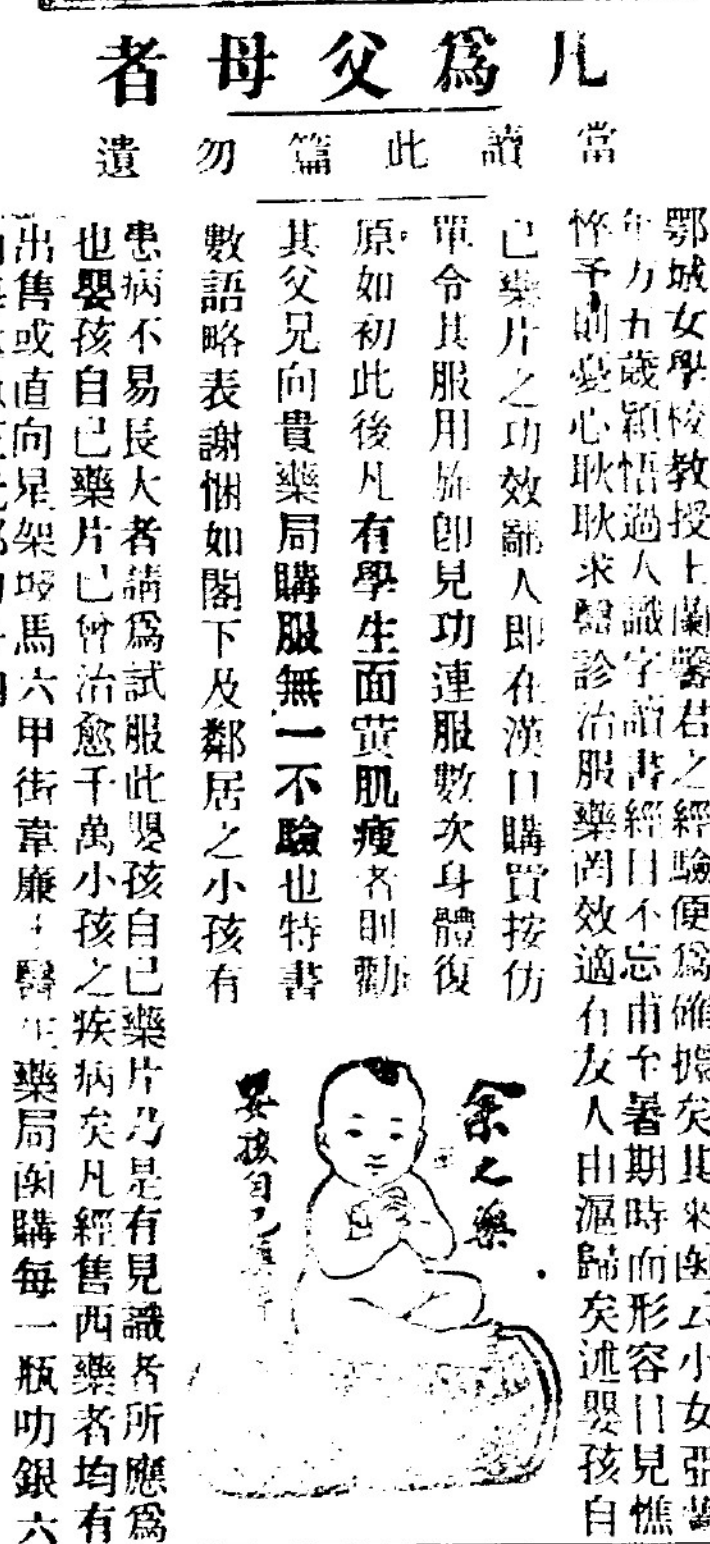 凡爲父母者
當讀此篇勿遺
鄂城女學校教授蘭馨君之經驗便爲確據矣其來函云小女亞蘭
年方五歲穎悟過人識字讀書經目不忘甫至暑期時而形容日見憔
悴予則憂心耿耿求醫診治服藥罔效適有友人由滬歸矣述嬰孩自
已藥片之功效鄙人即在漢口購買按仿
單令其服用旋卽見功連服數次身體復
原如初此後凡有學生面黃肌瘦者則勸
其父兄向貴藥局購服無一不驗也特書
數語略表謝悃如閣下及鄰居之小孩有
余之藥
嬰孩自己
患病不易長大者請爲試服此嬰孩自已藥片乃是有見識者所應爲
也嬰孩自已藥片已曾治愈千萬小孩之疾病矣凡經售西藥者均有
出售或直向星架坡馬六甲街韋廉士醫生藥局函購每一瓶叻銀六